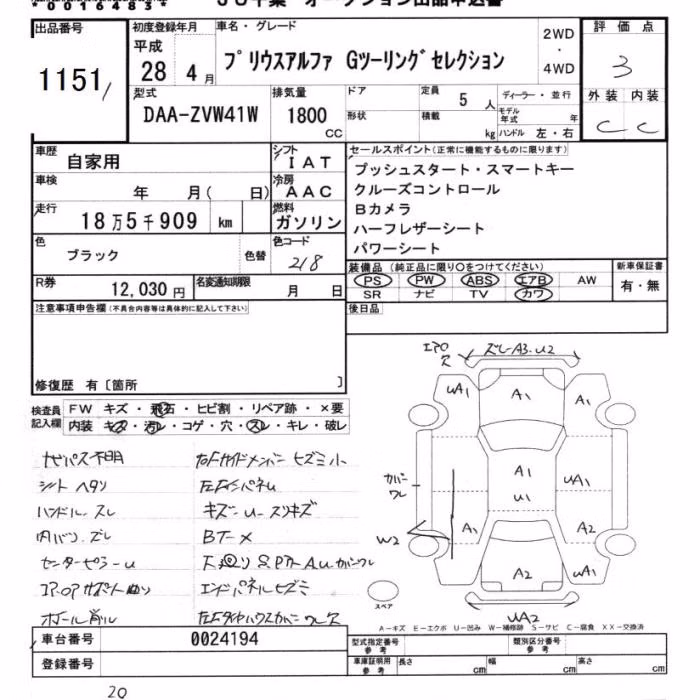 *00164834*
出品番号
1151/
初度登録年月
平成
28 4月
車名・グレード
プリウスアルファ Gツーリングセレクション
2WD
・
4WD
評価点
3
外装 内装
C C
型式
DAA-ZVW41W
排気量
1800
CC
ドア
形状
定員
5 人
積載
kg
ディーラー・並行
モデル年式 年
ハンドル 左・右
車歴
自家用
車検
年 月( 日)
走行
18万5千909 km
シフト
IAT
冷房
AAC
燃料
ガソリン
色
ブラック
色替
色コード
218
セールスポイント(正常に機能するものに限ります)
プッシュスタート・スマートキー
クルーズコントロール
Bカメラ
ハーフレザーシート
パワーシート
R券
12,030円
名変通知期限
月 日
装備品 (純正品に限り○をつけてください)
PS PW ABS エアB AW
SR ナビ TV カワ
新車保証書
有・無
注意事項申告欄(不具合内容等は具体的に記入して下さい)
後日品
修復歴 有〔箇所 〕
検査員
記入欄
FW キズ・飛石・ヒビ割・リペア跡・×要
内装 キズ・汚レ・コゲ・穴・スレ・キレ・破レ
セパス不明
シートヘタリ
ハンドルスレ
内バリズレ
センターピラーU
コアサポート曲り
ホイール削ル
右Fサイドメンバーヒズミ小
左Fインパネu
キズ-U-スリキズ
BT-×
エンドパネルヒズミ
左Fタイヤハウスカバーワレ欠
エアロ
欠
ズレ-A3.U2
UA1
A1
A1
U1
UA1
カバー
ワレ
W2
A1
A2
A2
UA1
UA2
スペア
A-キズ E-エクボ U-凹み W-補修跡 S-サビ C-腐食 XX-交換済
車台番号
0024194
登録番号
型式指定番号
参考
類別区分番号
参考
車庫証明用
参考
長さ cm
幅 cm
高さ cm
20